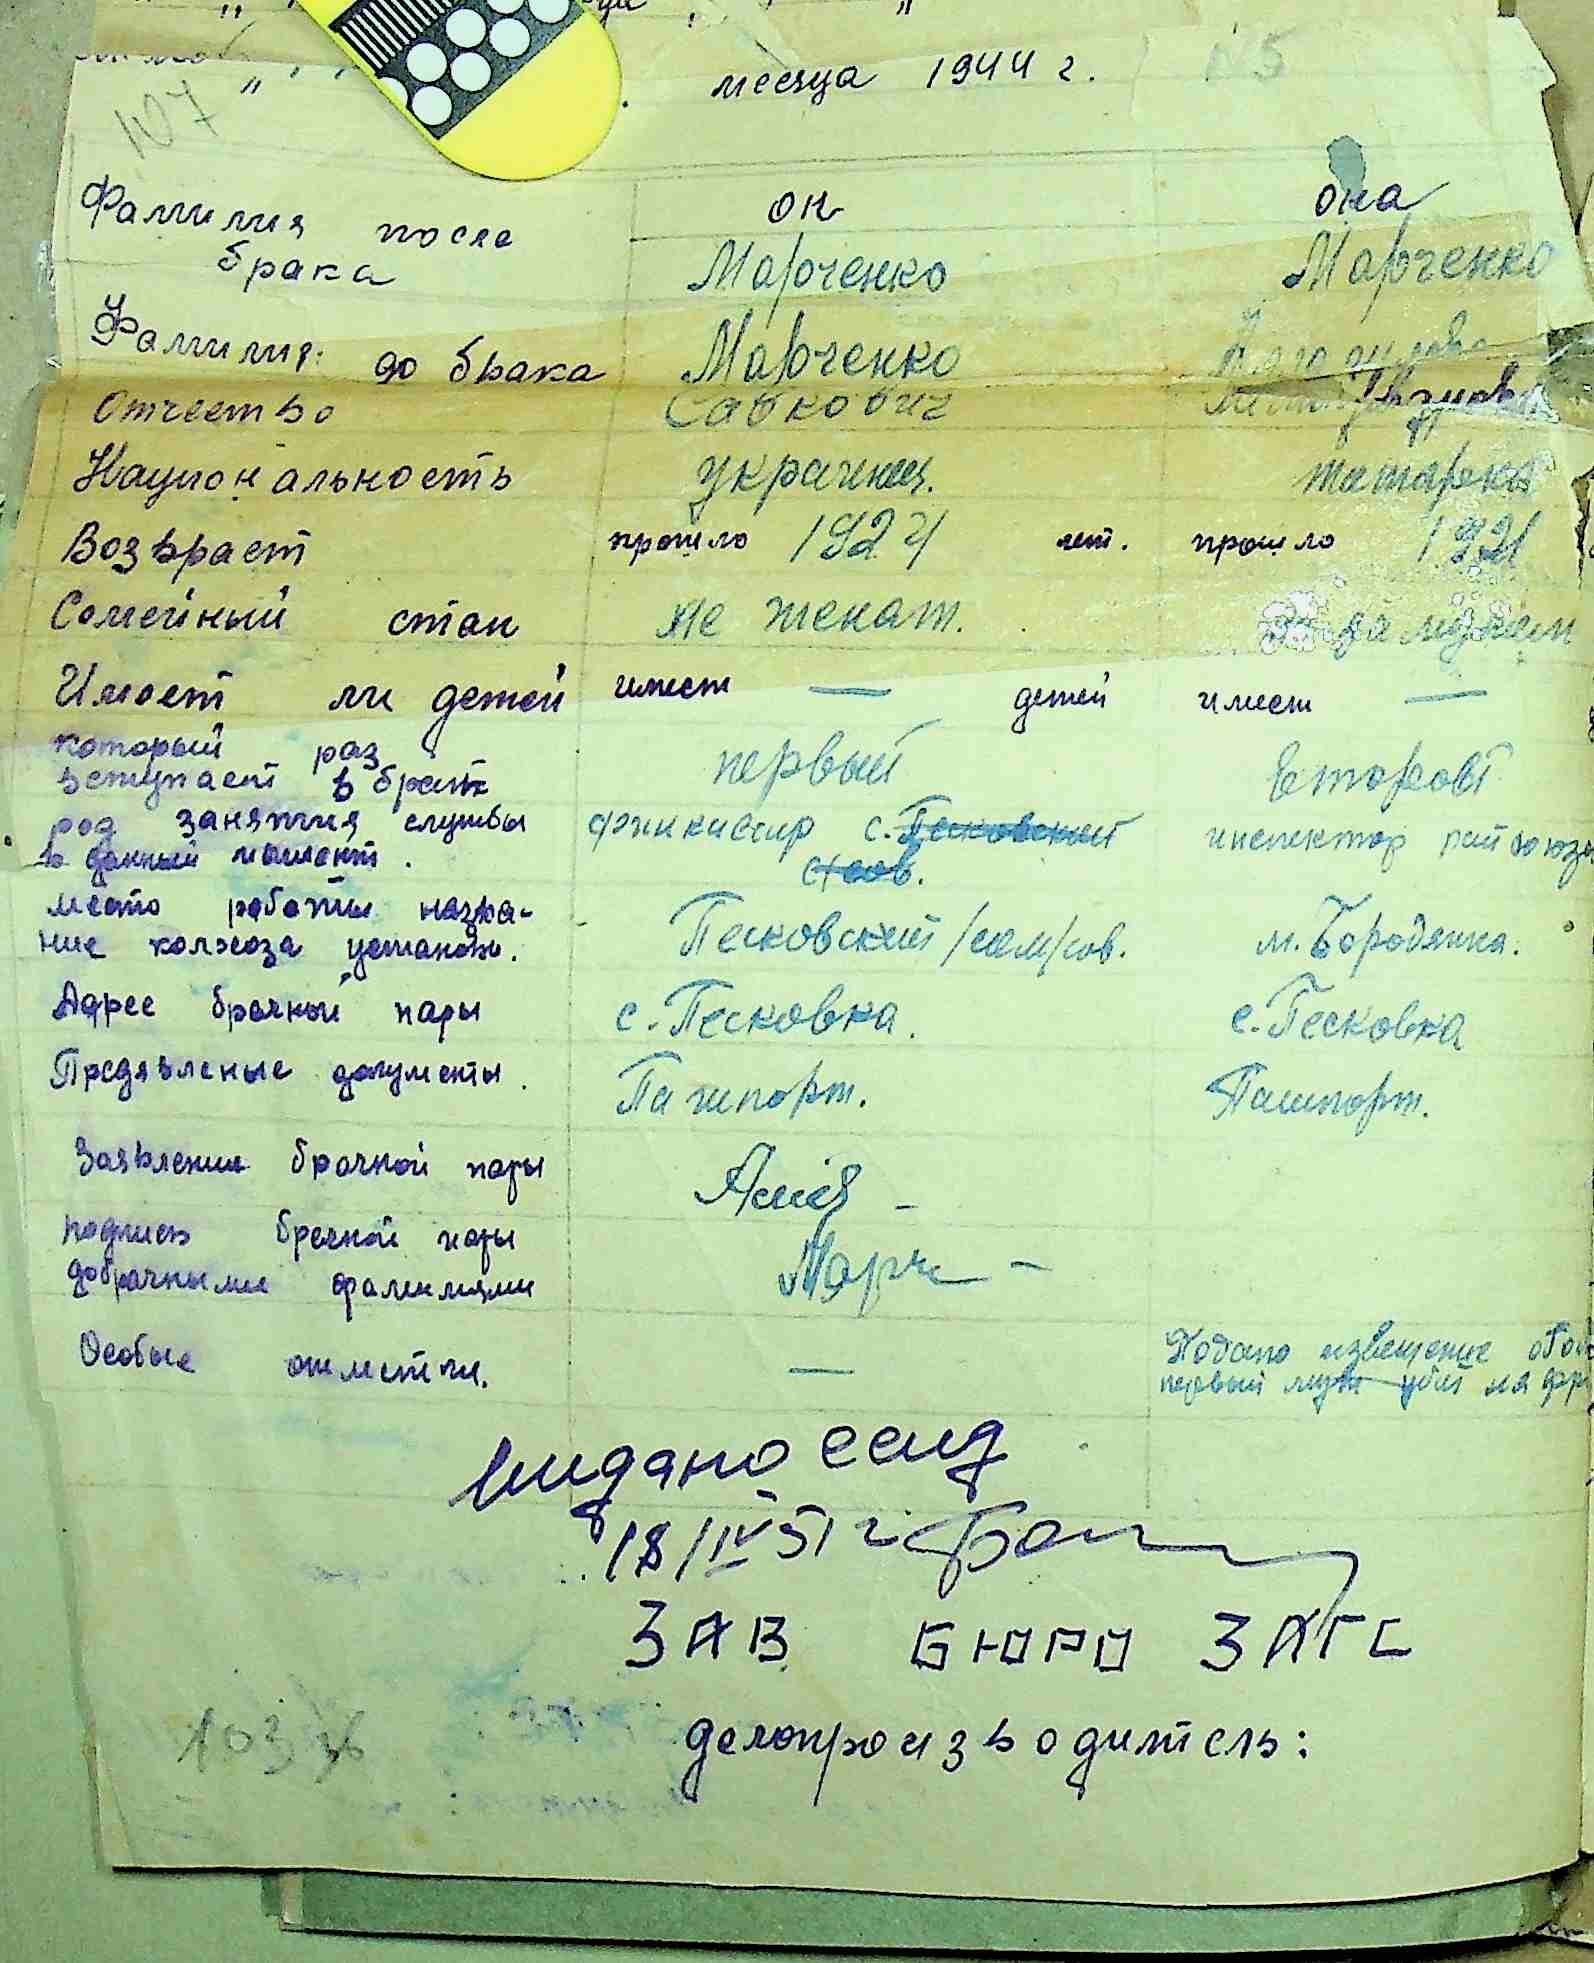 месяца 1944 г.
N5
107
он она
Фамилия после
брака Марченко Марченко
Фамилия: до брака Марченко
Отчество Савкович
Национальность украинец. татарка
Возвраст прошло 1924 лет. прошло 1921
Семейный стан не женат. замужем
Имеет ли детей имеет — детей имеет —
который раз
вступает в брак первый второй
род занятия службы финисатр с. Песковский инспектор райсоюза
в данный момент. с/сов.
место работы назва-
ние колхоза установ. Песковский /сель/сов. м. Бородянка.
Адрес брачной пары с. Песковка. с. Песковка
Предявленые документы. Пашпорт. Пашпорт.
Заявление брачной пары
подпись брачной пары
добрачными фамилиями Марч
Особые отметки. — Подано извещение
первый муж убит на фр
видано свид
18/IV 51 г
ЗАВ БЮРО ЗАГС
делопроизводитель:
103